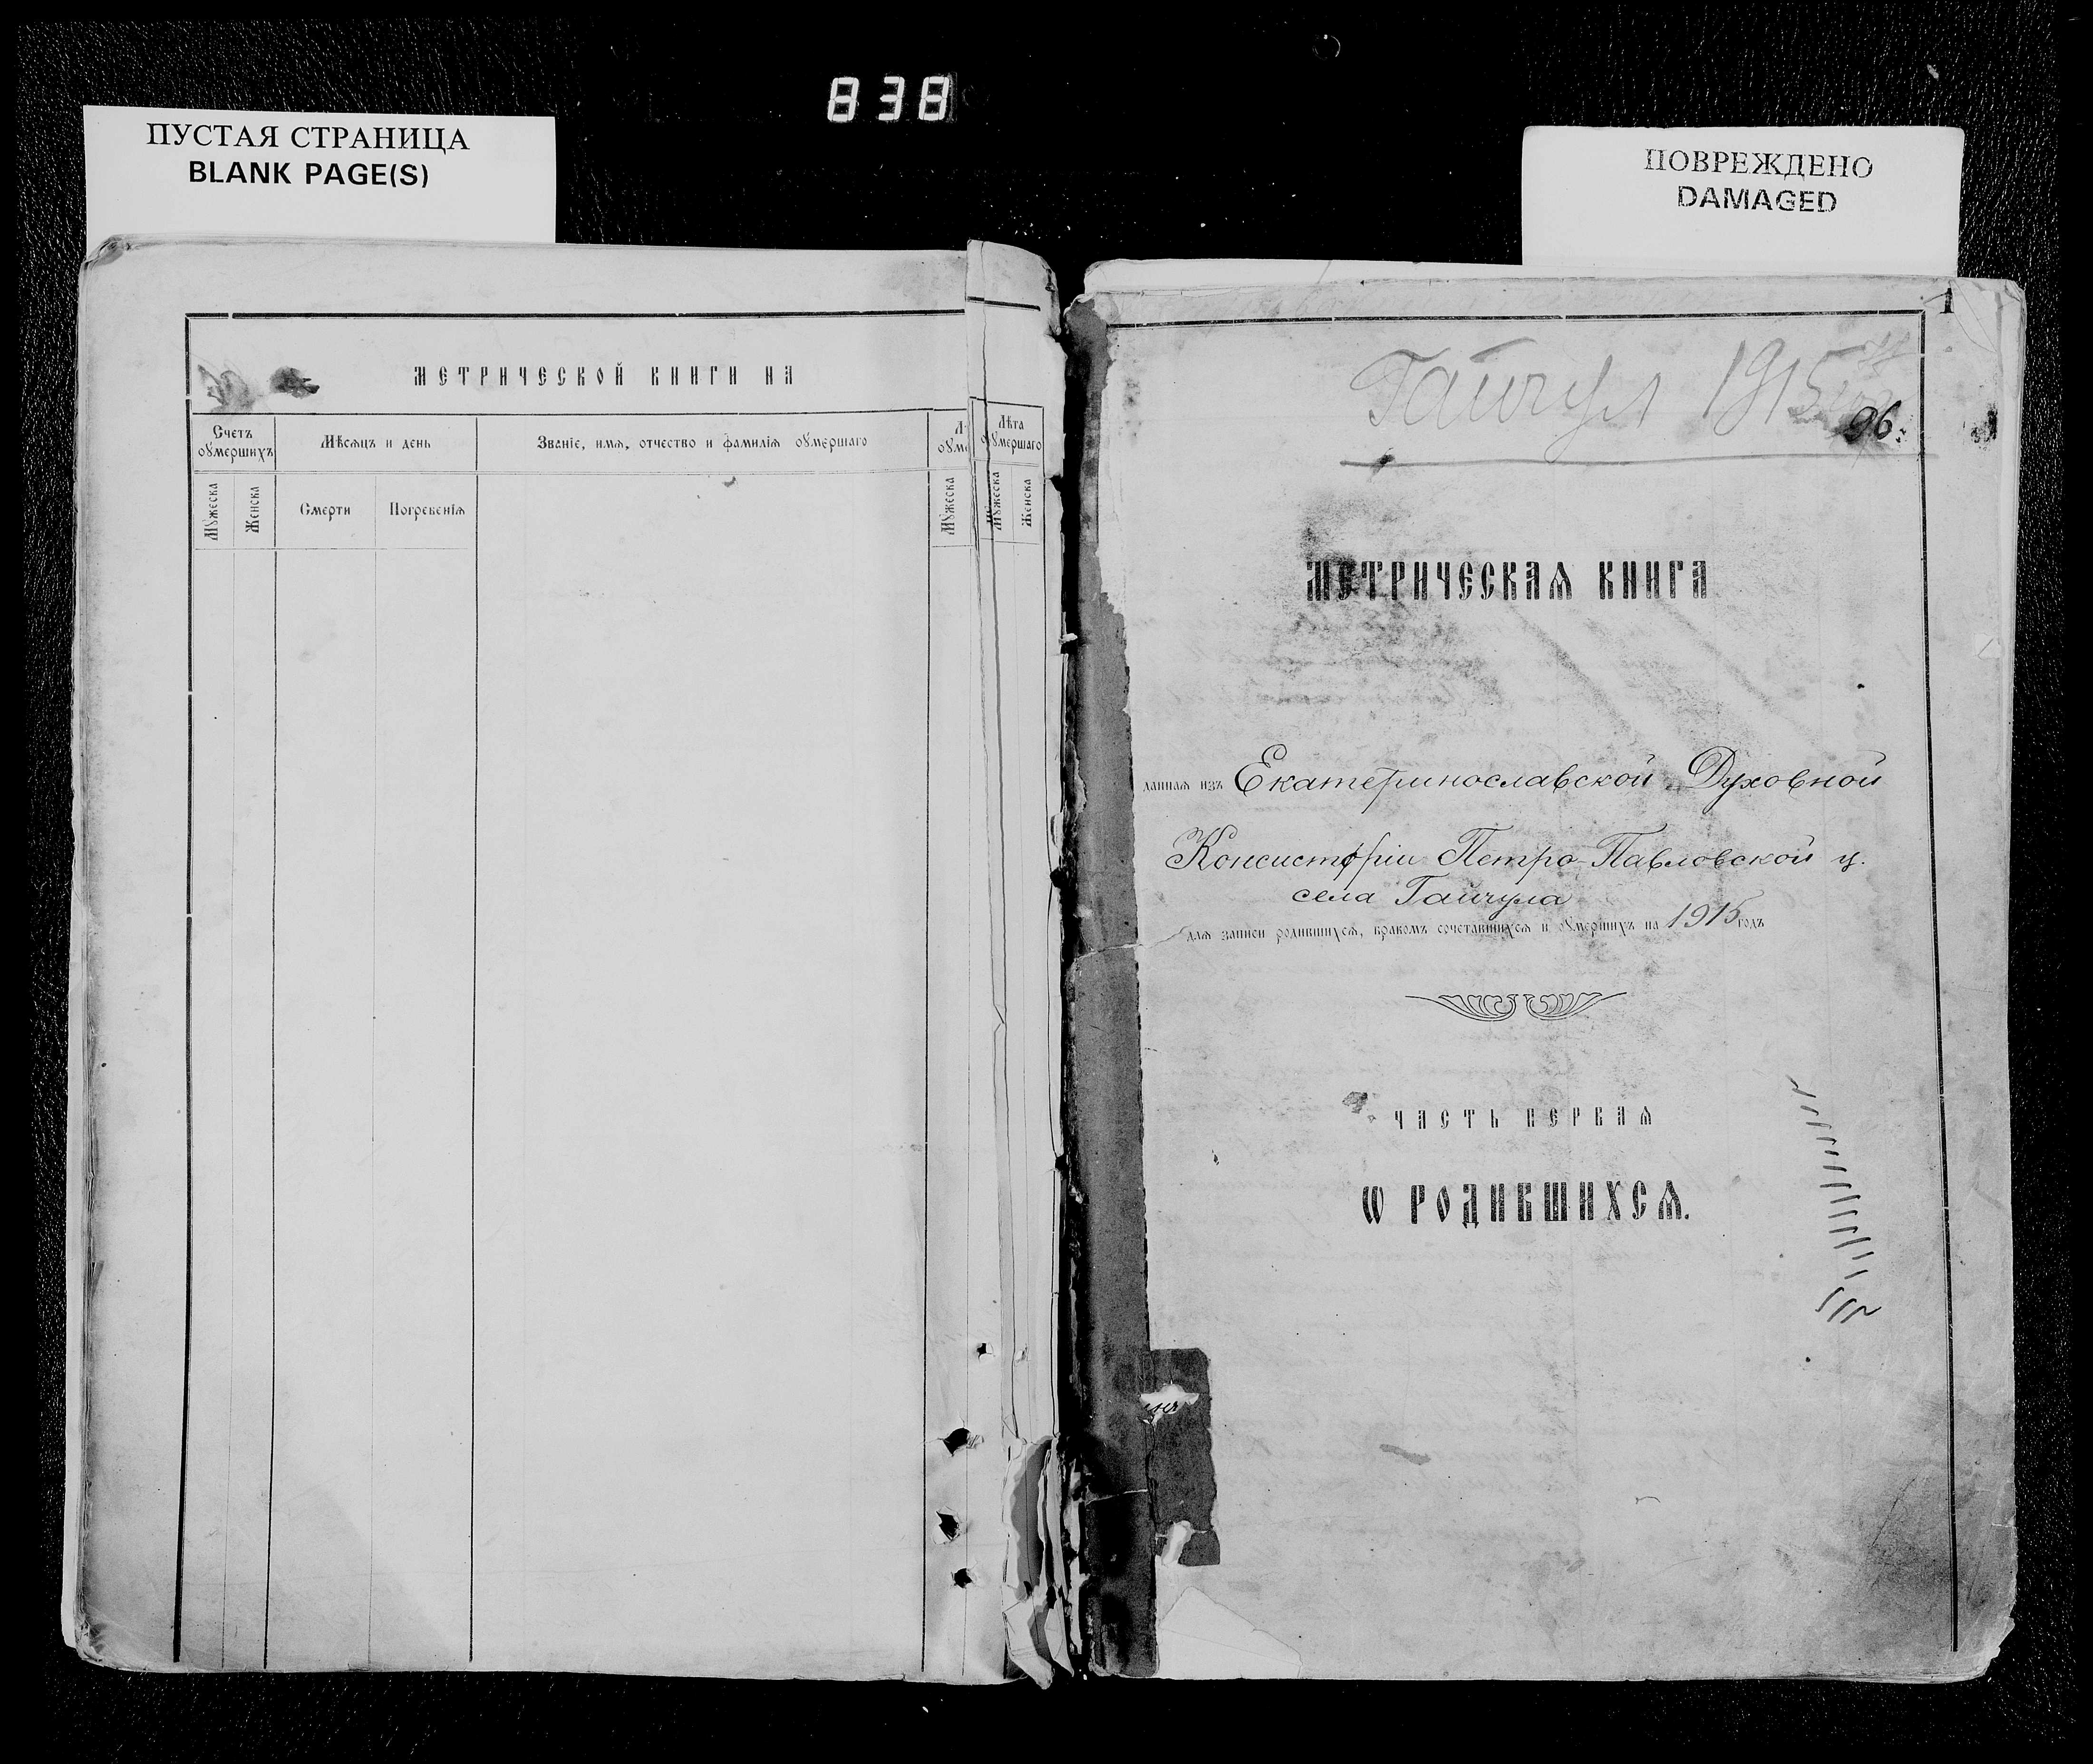 838
ПУСТАЯ СТРАНИЦА
BLANK PAGE(S)
ПОВРЕЖДЕНО
DAMAGED
МЕТРИЧЕСКОЙ КНИГИ НА
Счетъ ѹмершихъ
Мѣсѧцъ и день
Званіе, имѧ, отчество и фамиліѧ ѹмершаго
Лѣта ѹмершаго
Мѹжеска
Женска
Смерти
Погребеніѧ
Мѹжеска
Мѹжеска
Женска
1
Гайчул 1915
96.
МЕТРИЧЕСКАѦ КНИГА
даннаѧ изъ Екатеринославской Духовной
Консисторіи Петро-Павловской ц.
села Гайчула
длѧ записи родившихсѧ, бракомъ сочетавшихсѧ и ѹмершихъ на 1915 годъ
ЧАСТЬ ПЕРВАѦ
Ѡ РОДИВШИХСѦ.